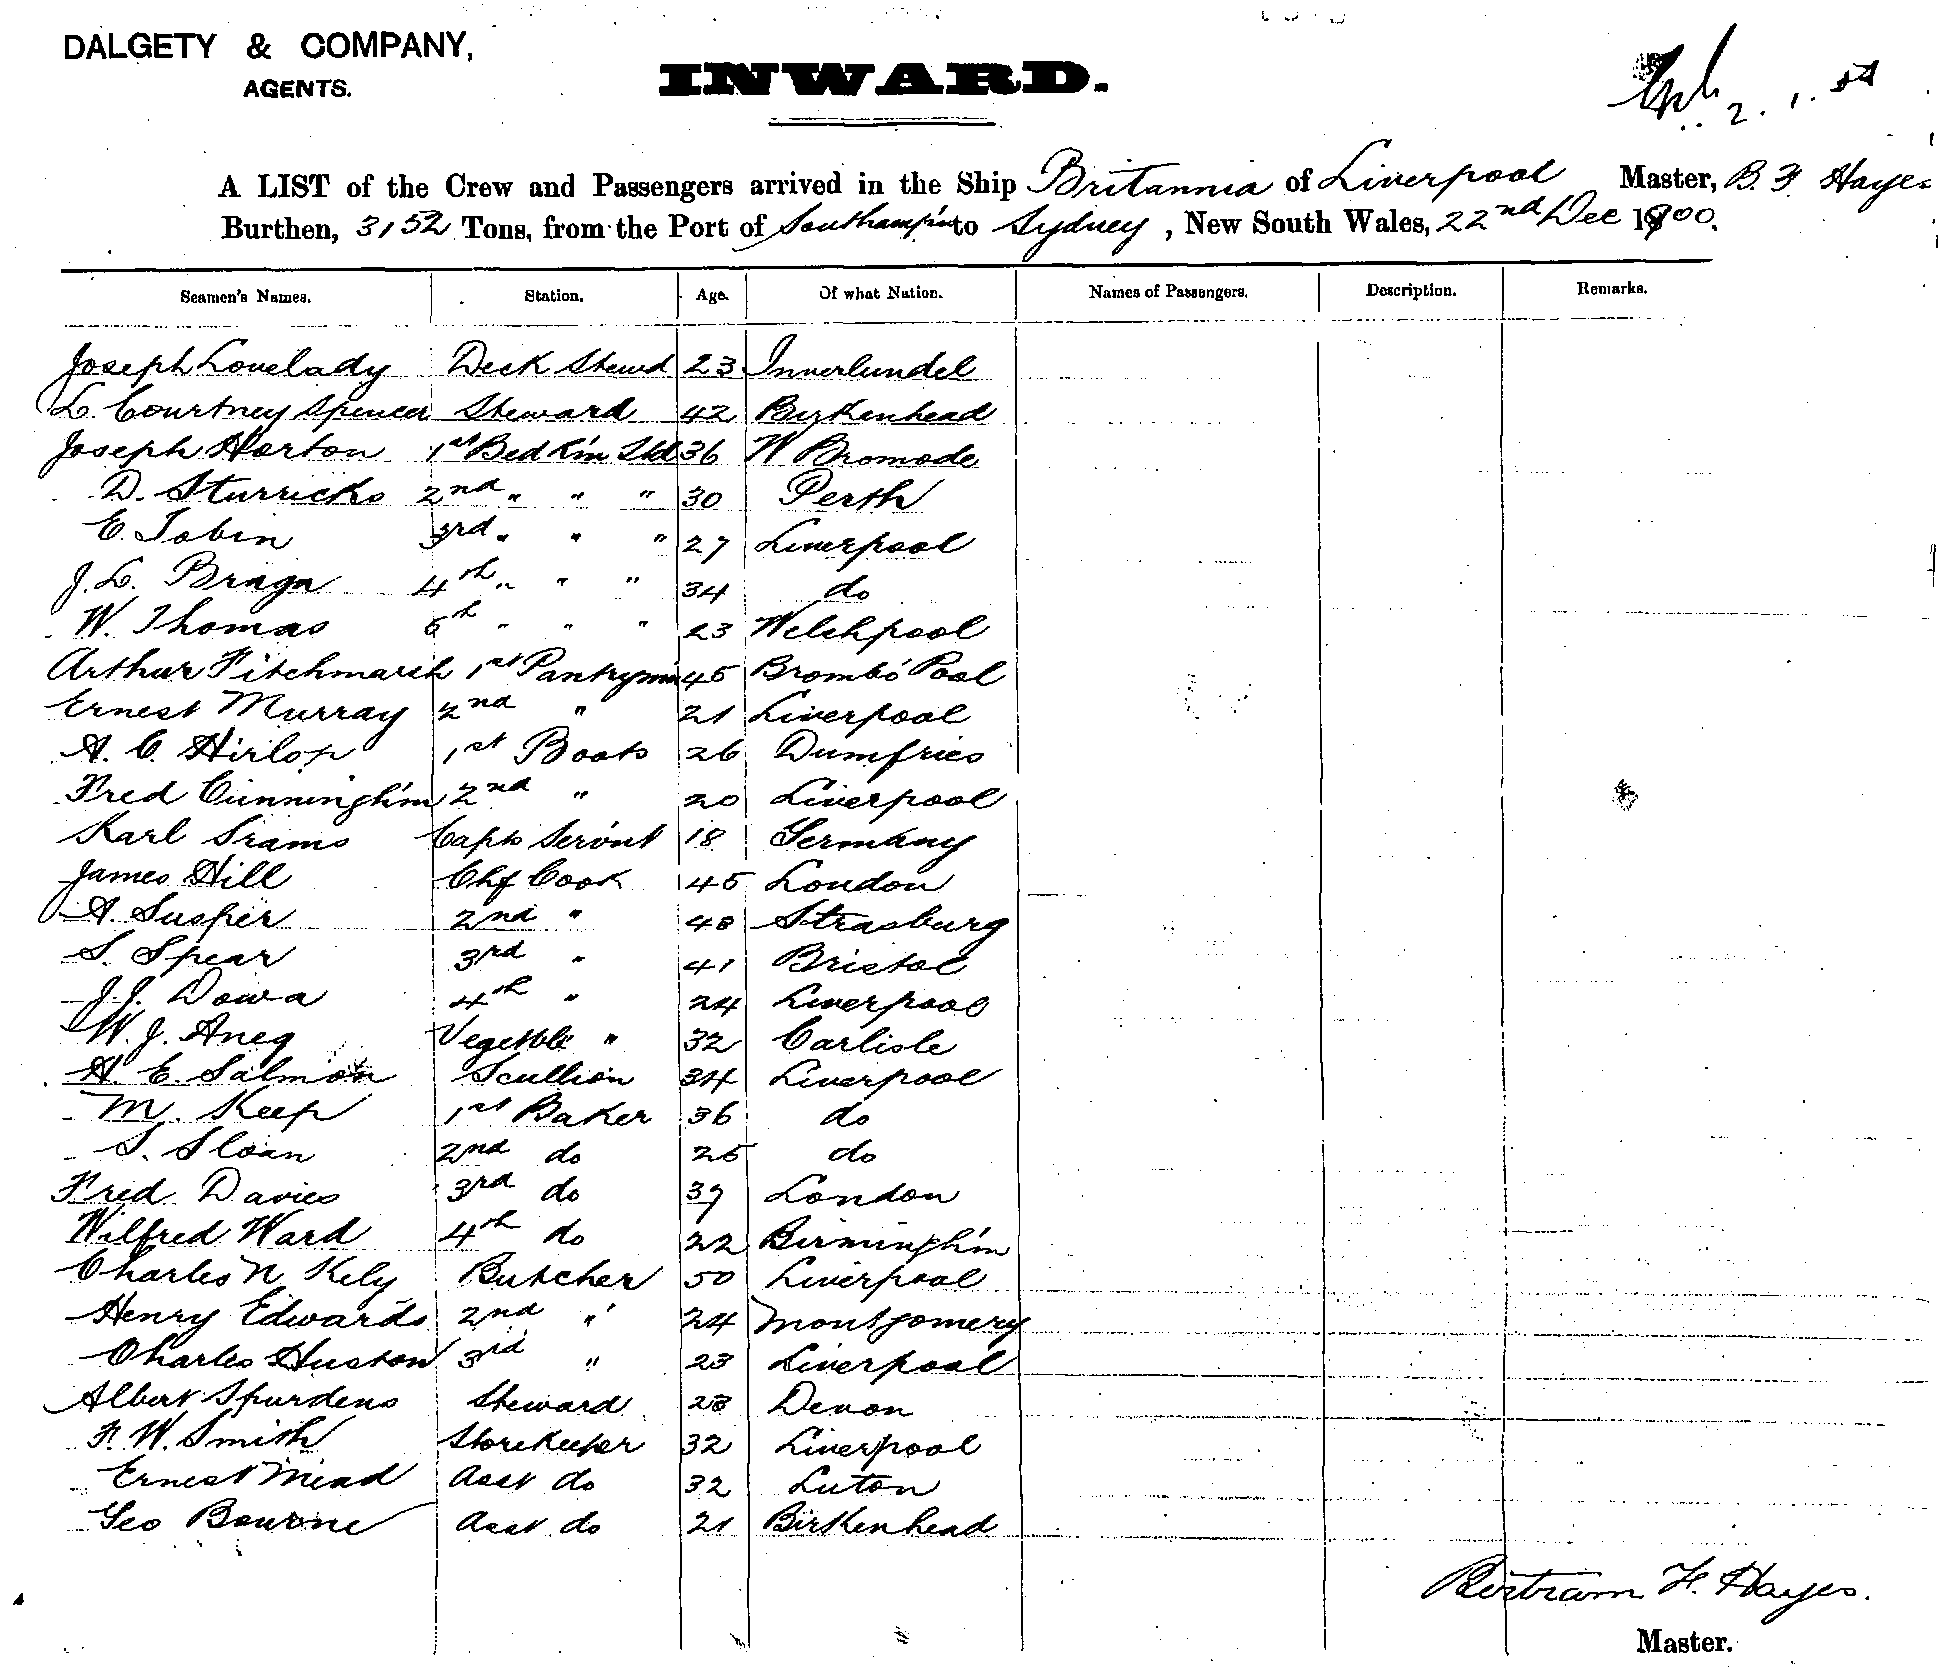 DALGETY & COMPANY,
AGENTS.
INWARD.
A LIST of the Crew and Passengers arrived in the Ship Britannia of Liverpool Master, B. F Hayes
Burthen, 3152 Tons, from the Port of Southamp'n to Sydney, New South Wales, 22nd Dec 1900.
Seamen's Names. Station. Age. Of what Nation. Names of Passengers. Description. Remarks.
Joseph Lovelady Deck Stewd 23
L. Courtney Spencer Steward 42 Birkenhead
Joseph Horton 1st Bed R'm Std 36 W Bromode
D. Sturricks 2nd " " " 30 Perth
E. Tobin 3rd " " " 27 Liverpool
J. L. Braga 4th " " " 34 do
W. Thomas 5th " " " 23 Welchpool
Arthur Titchmarch 1st Pantrym'n 45 Brombo' Pool
Ernest Murray 2nd " 21 Liverpool
A. C. Hirlop 1st Boots 26 Dumfries
Fred Cunningh'm 2nd " 20 Liverpool
Karl Srams Capts Serv'nt 18 Germany
James Hill Chf Cook 45 London
A. Susper 2nd " 48 Strasburg
S. Spear 3rd " 41 Bristol
J. J. Dowa 4th " 24 Liverpool
W. J. Aneg Vegetble " 32 Carlisle
A. E. Salmon Scullion 34 Liverpool
M. Keep 1st Baker 36 do
S. Sloan 2nd do 25 do
Fred Davies 3rd do 37 London
Wilfred Ward 4th do 22 Birmingh'm
Charles N Kely Butcher 50 Liverpool
Henry Edwards 2nd " 24 Montgomery
Charles Huston 3rd " 23 Liverpool
Albert Spurdens Steward 28 Devon
F. W. Smith Storekeeper 32 Liverpool
Ernest Mead Asst do 32 Luton
Geo Bourne Asst do 21 Birkenhead
Bertram F. Hayes.
Master.